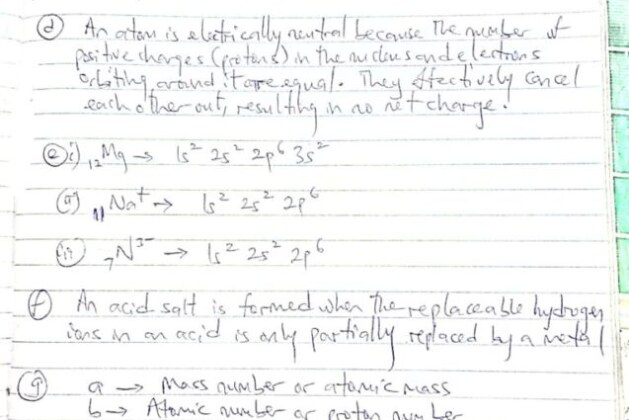 (d) An atom is electrically neutral because The number of
positive charges (protons) in the nucleus and electrons
orbiting around it are equal. They effectively cancel
each other out, resulting in no net charge.
(e) i) ₁₂Mg → 1s² 2s² 2p⁶ 3s²
(ii) ₁₁Na⁺ → 1s² 2s² 2p⁶
(iii) ₇N³⁻ → 1s² 2s² 2p⁶
(f) An acid salt is formed when The replaceable hydrogen
ions in an acid is only partially replaced by a metal
(g) a → Mass number or atomic mass
b → Atomic number or proton number